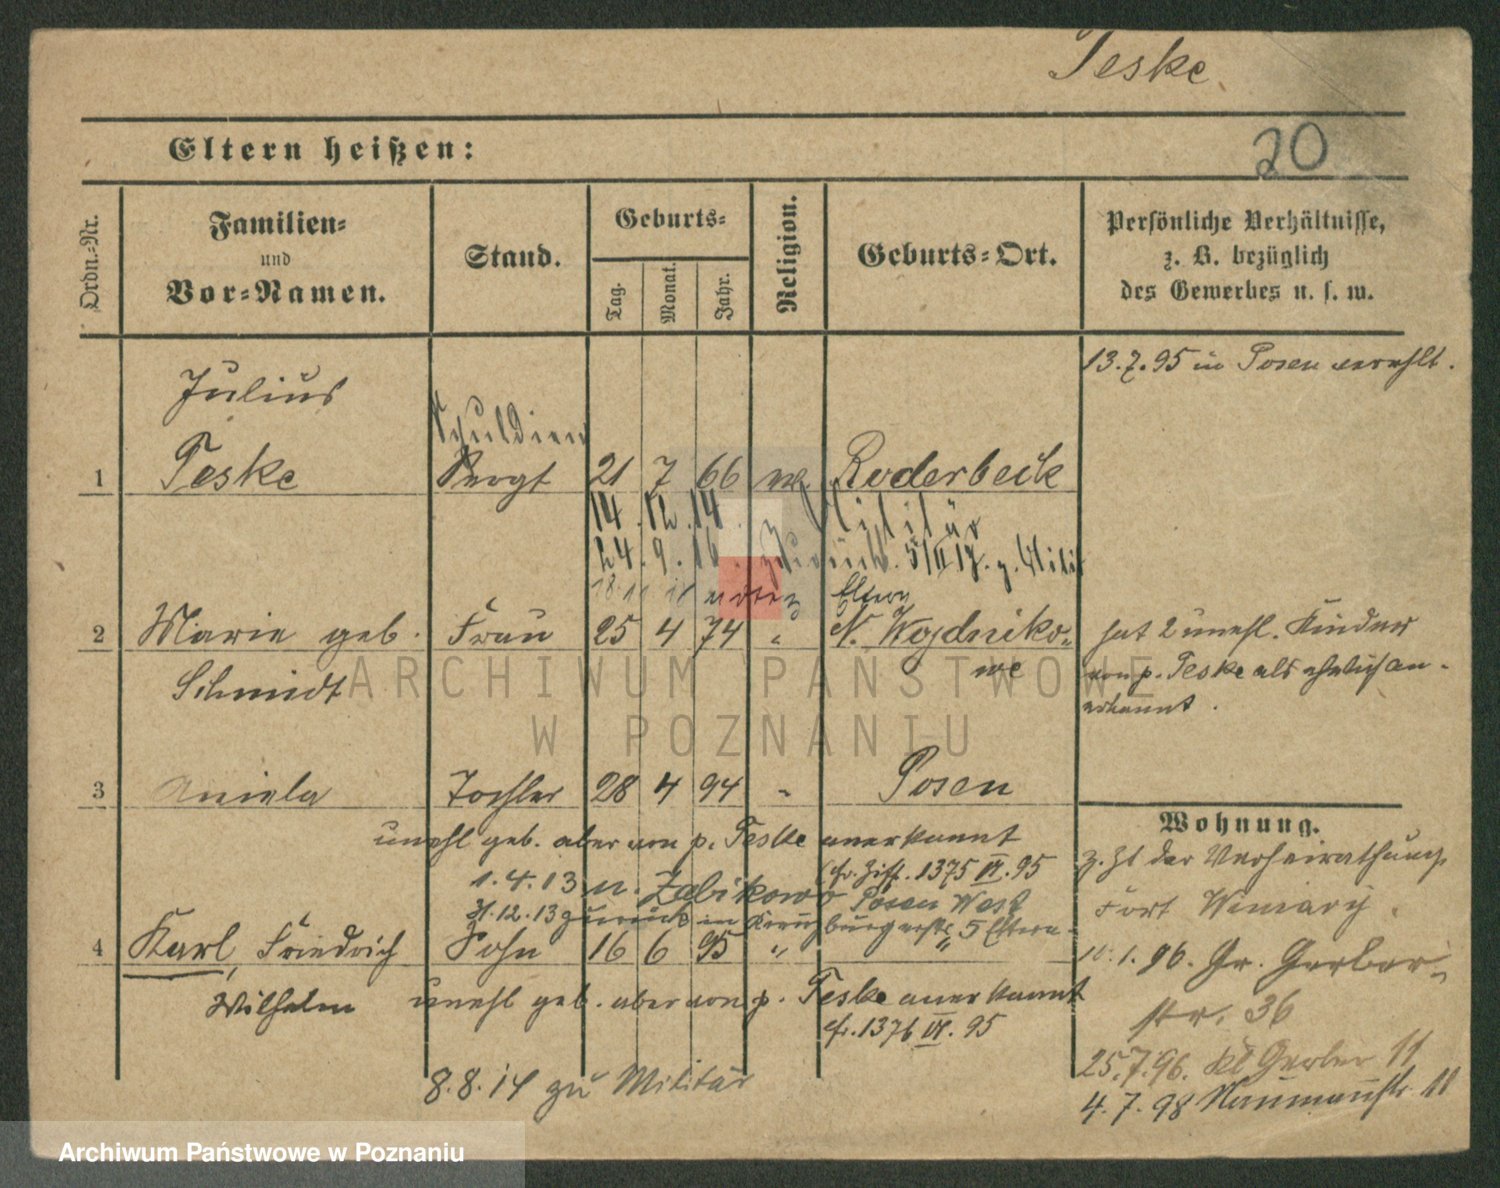 Teske
20
Eltern heißen:
Ordn.-Nr.
Familien-
und
Vor-Namen.
Stand.
Geburts-
Tag.
Monat.
Jahr.
Religion.
Geburts-Ort.
Persönliche Verhältnisse,
z. B. bezüglich
des Gewerbes u. s. w.
13.7.95 in Posen verehl.
Julius
Schuldien
1 Teske Sergt 21 7 66 Roderbeck
14.12.14. Militär
24.9.16. zurück. 5/II 17. z. Milit
18.11 Eltern
2 Marie geb. Frau 25 4 74 " N. Wojdniko-
Schmidt we
hat 2 unehl. Kinder
von p. Teske als ehelich an-
erkannt.
3 Aniela Tochter 28 4 94 " Posen
unehl geb. aber von p. Teske anerkannt
cfr. Ziff. 1375 VI. 95
1.4.13 n. Zabikowo Posen West
31.12.13 zurück in Kreuz
burgerstr 5 Eltern.
4 Karl, Friedrich Sohn 16 6 95 " "
Wilhelm
unehl geb. aber von p. Teske anerkannt
cfr. 1376 VI. 95
8.8.14 zu Militär
Wohnung.
z. Zt der Verheirathung
Fort Winiary.
1.96. Gr. Gerber-
str. 36
25.7.96. Kl Gerber 11
4.7.98 Naumannstr. 11
ARCHIWUM PAŃSTWOWE
W POZNANIU
Archiwum Państwowe w Poznaniu